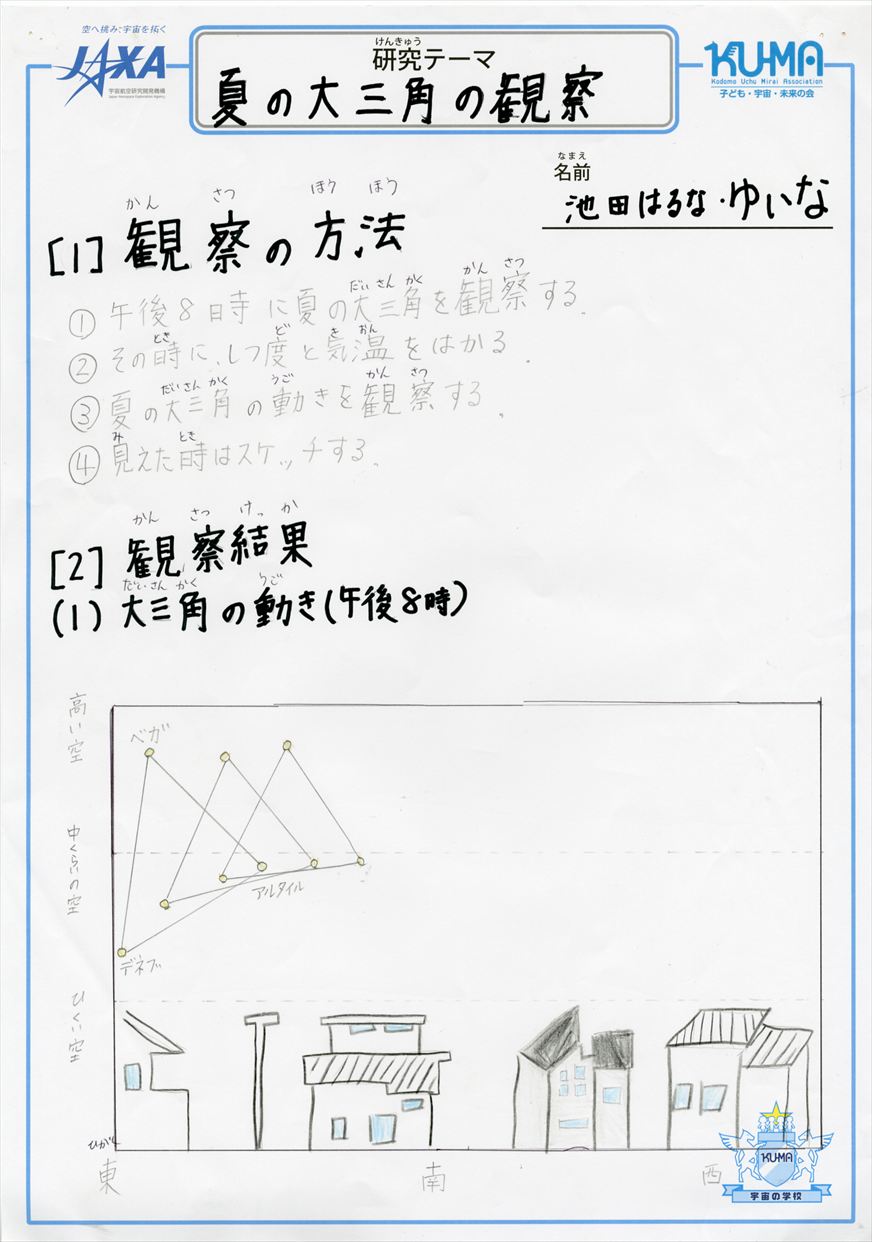 空へ挑み、宇宙を拓く
JAXA
宇宙航空研究開発機構
Japan Aerospace Exploration Agency
けんきゅう
研究テーマ
夏の大三角の観察
KU-MA
Kodomo Uchu Mirai Association
子ども・宇宙・未来の会
なまえ
名前
池田はるな・ゆいな
かん さつ ほう ほう
[1] 観察の方法
だい さん かく かん さつ
① 午後8日時に夏の大三角を観察する。
とき ど き おん
② その時に、しつ度と気温をはかる。
だい さん かく うご かん さつ
③ 夏の大三角の動きを観察する。
み とき
④ 見えた時はスケッチする。
かん さつ けっ か
[2] 観察結果
だい さん かく うご
(1) 大三角の動き(午後8時)
高い空
ベガ
中くらいの空
アルタイル
デネブ
ひくい空
ひがし
東
南
西
KU-MA
宇宙の学校